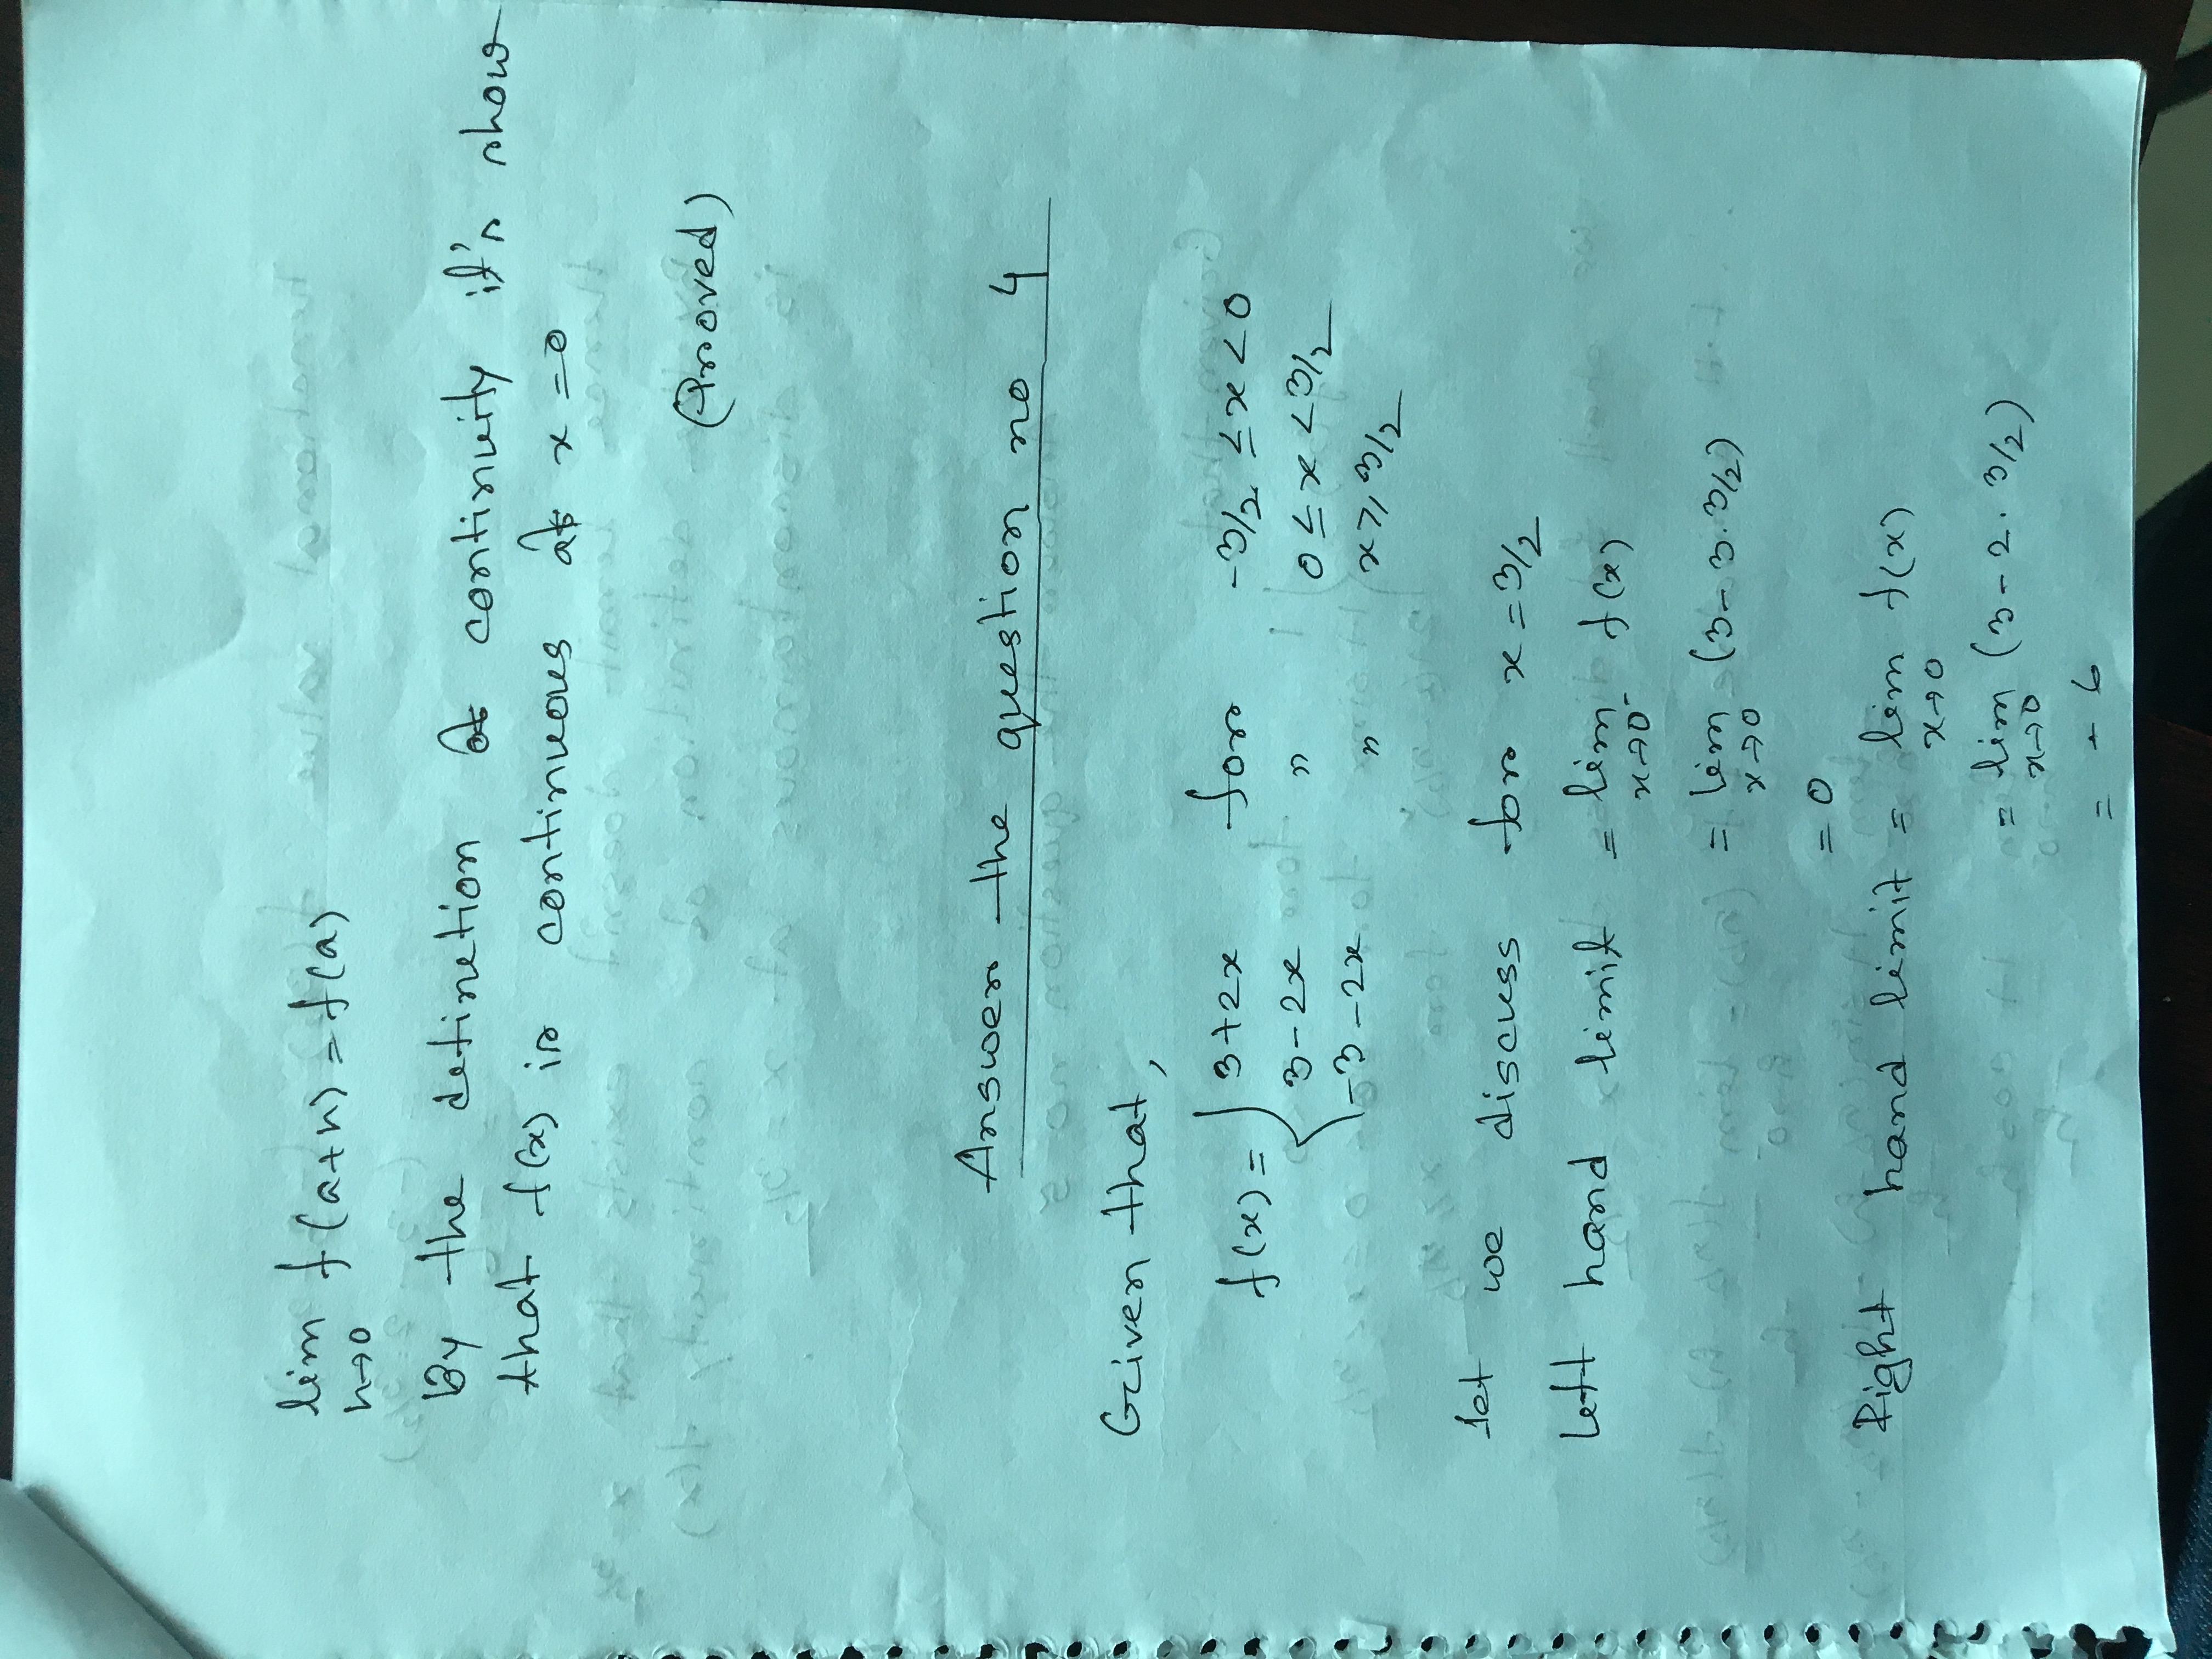 lim f(a+h) = f(a)
h→0
By the definetion of continuity it's show
that f(x) is continuous at x = 0
(Proved)
Answer the question no 4
Given that,
f(x) = { 3+2x for -3/2 ≤ x < 0
3-2x " 0 ≤ x < 3/2
-3-2x " x ≥ 3/2
let we discuss for x = 3/2
Left hand limit = lim f(x)
x→0-
= lim (3 - 3. 3/2)
x→0
= 0
Right hand limit = lim f(x)
x→0
= lim (3 - 2. 3/2)
x→0
= - 6